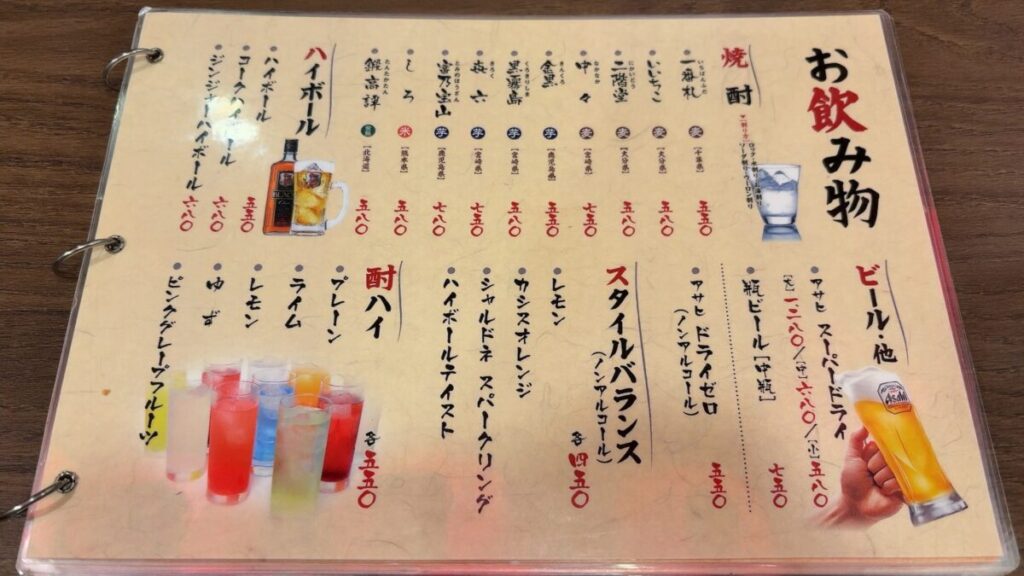 お飲み物
焼酎
一番札 麦 [千葉県] 五五〇
いいちこ 麦 [大分県] 五八〇
二階堂 麦 [大分県] 五八〇
中々 麦 [宮崎県] 七五〇
金黒 芋 [鹿児島県] 五五〇
黒霧島 芋 [宮崎県] 五五〇
㐂六 芋 [宮崎県] 七五〇
富乃宝山 芋 [鹿児島県] 七八〇
しろ 米 [熊本県] 五八〇
鍛高譚 [北海道] 五八〇
ハイボール
ハイボール 五五〇
コークハイボール 六八〇
ジンジャーハイボール 六八〇
ビール・他
アサヒ スーパードライ
[大] 一二八〇/[中] 六八〇/[小] 五八〇
瓶ビール [中瓶] 七五〇
アサヒ ドライゼロ
(ノンアルコール) 五五〇
スタイルバランス
(ノンアルコール) 各 四五〇
レモン
カシスオレンジ
シャルドネ スパークリング
ハイボールテイスト
酎ハイ 各 五五〇
プレーン
ライム
レモン
ゆず
ピンクグレープフルーツ
Asahi